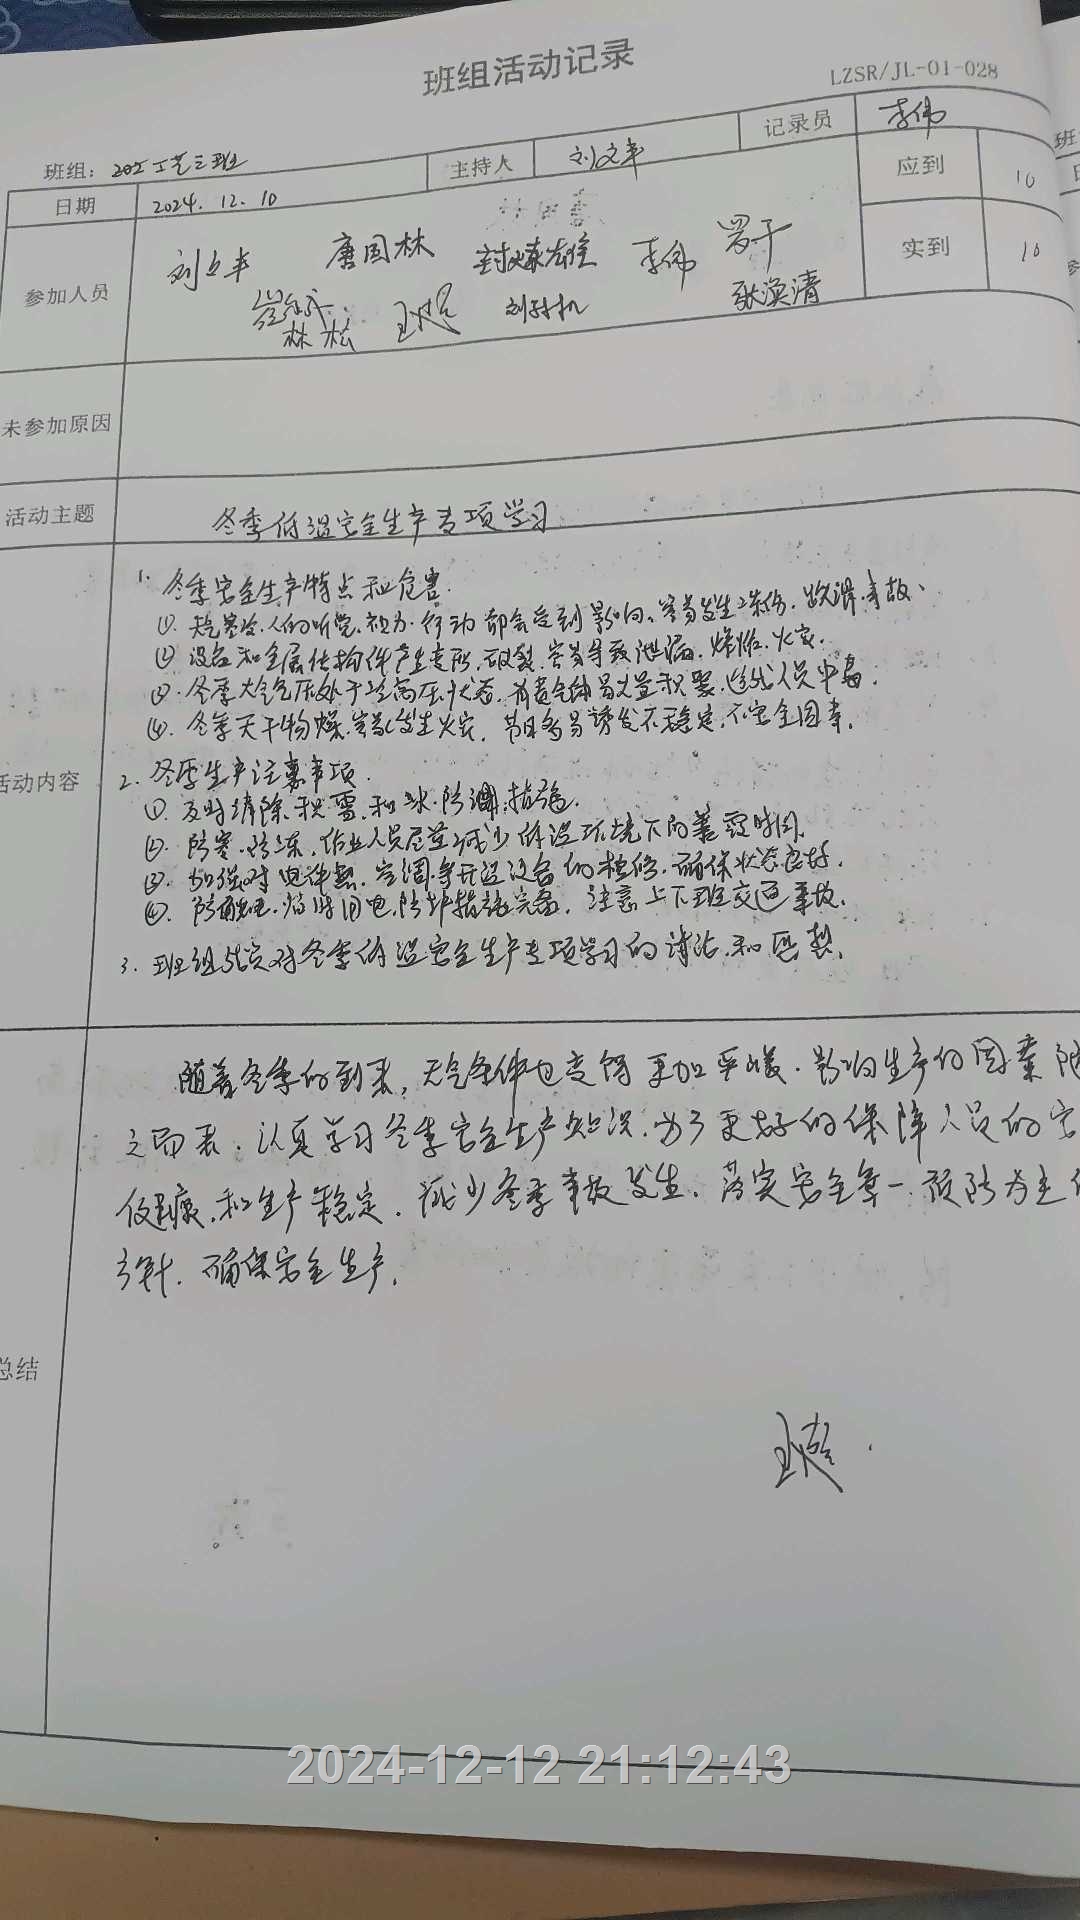 班组活动记录
LZSR/JL-01-028
班组: 202工艺三班 主持人 刘文丰 记录员 李伟
日期 2024.12.10 应到 10
参加人员 刘文丰 唐国林 李伟 罗干 实到 10
林松 张涣清
未参加原因
活动主题 冬季低温安全生产专项学习
活动内容
1. 冬季安全生产特点和危害.
①. 天气寒冷.人的听觉.视力.行动都会受到影响.容易发生冻伤.跌滑事故.
②. 设备和金属结构件产生变形.破裂.容易导致泄漏.爆炸.火灾.
③. 冬季大气气压处于较高压状态.有毒气体易大量积聚.造成人员中毒.
④. 冬季天干物燥.容易发生火灾.节日多易诱发不稳定.不安全因素.
2. 冬季生产注意事项.
①. 及时清除积雪和冰.防滑措施.
②. 防寒.防冻.作业人员尽量减少低温环境下的暴露时间.
③. 加强对电伴热.空调等升温设备的检修.确保状态良好.
④. 防触电.临时用电防护措施完备.注意上下班交通事故.
3. 班组成员对冬季低温安全生产专项学习的讨论和
总结
随着冬季的到来,天气条件也变得更加严峻.影响生产的因素随
之而来.认真学习冬季安全生产知识.为了更好的保障人员的安
健康.和生产稳定.减少冬季事故发生.落实安全第一.预防为主的
方针.确保安全生产.
2024-12-12 21:12:43